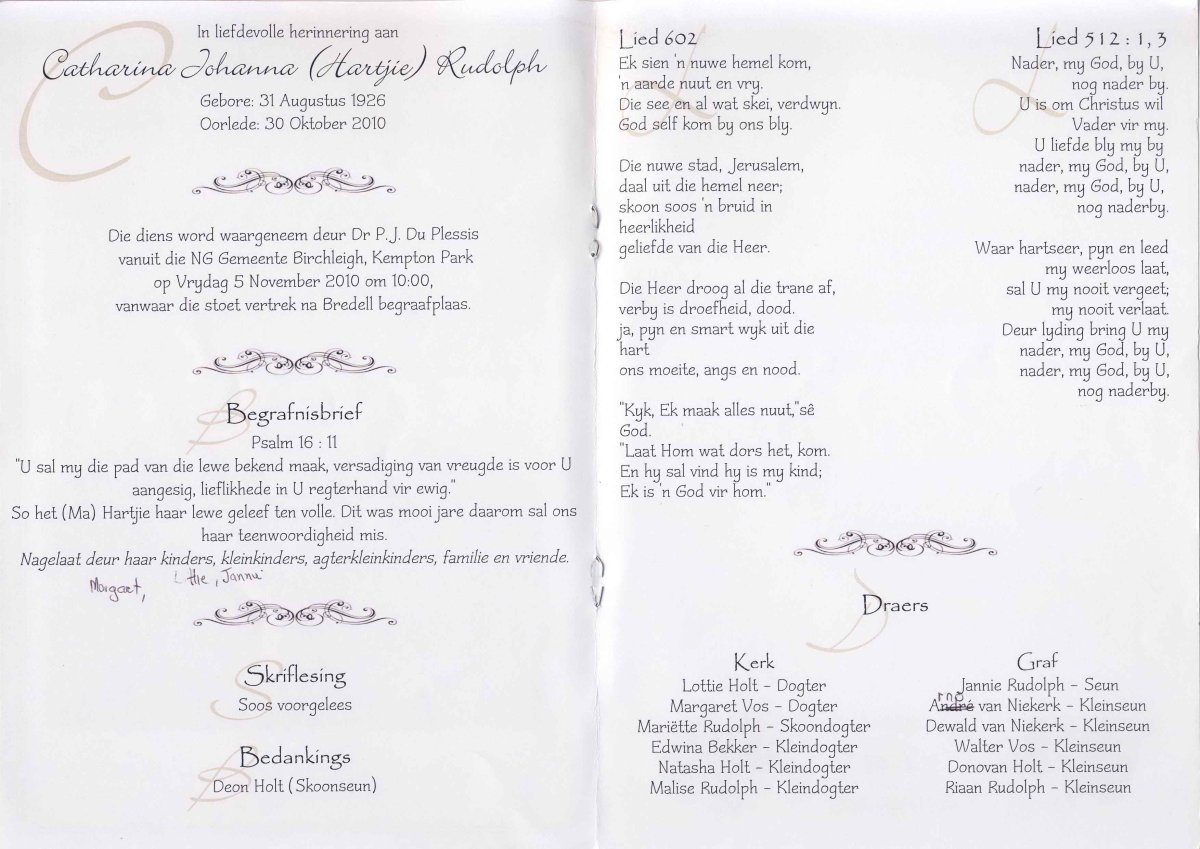 In liefdevolle herinnering aan
Catharina Johanna (Hartjie) Rudolph
Gebore: 31 Augustus 1926
Oorlede: 30 Oktober 2010
Die diens word waargeneem deur Dr P.J. Du Plessis
vanuit die NG Gemeente Birchleigh, Kempton Park
op Vrydag 5 November 2010 om 10:00,
vanwaar die stoet vertrek na Bredell begraafplaas.
Begrafnisbrief
Psalm 16 : 11
"U sal my die pad van die lewe bekend maak, versadiging van vreugde is voor U
aangesig, lieflikhede in U regterhand vir ewig."
So het (Ma) Hartjie haar lewe geleef ten volle. Dit was mooi jare daarom sal ons
haar teenwoordigheid mis.
Nagelaat deur haar kinders, kleinkinders, agterkleinkinders, familie en vriende.
Margaet, Jannie
Skriflesing
Soos voorgelees
Bedankings
Deon Holt (Skoonseun)
Lied 602
Ek sien 'n nuwe hemel kom,
'n aarde nuut en vry.
Die see en al wat skei, verdwyn.
God self kom by ons bly.
Die nuwe stad, Jerusalem,
daal uit die hemel neer;
skoon soos 'n bruid in
heerlikheid
geliefde van die Heer.
Die Heer droog al die trane af,
verby is droefheid, dood.
ja, pyn en smart wyk uit die
hart
ons moeite, angs en nood.
"Kyk, Ek maak alles nuut,"sê
God.
"Laat Hom wat dors het, kom.
En hy sal vind hy is my kind;
Ek is 'n God vir hom."
Lied 512 : 1, 3
Nader, my God, by U,
nog nader by.
U is om Christus wil
Vader vir my.
U liefde bly my by
nader, my God, by U,
nader, my God, by U,
nog naderby.
Waar hartseer, pyn en leed
my weerloos laat,
sal U my nooit vergeet;
my nooit verlaat.
Deur lyding bring U my
nader, my God, by U,
nader, my God, by U,
nog naderby.
Draers
Kerk
Lottie Holt - Dogter
Margaret Vos - Dogter
Mariëtte Rudolph - Skoondogter
Edwina Bekker - Kleindogter
Natasha Holt - Kleindogter
Malise Rudolph - Kleindogter
Graf
Jannie Rudolph - Seun
rno
André van Niekerk - Kleinseun
Dewald van Niekerk - Kleinseun
Walter Vos - Kleinseun
Donovan Holt - Kleinseun
Riaan Rudolph - Kleinseun